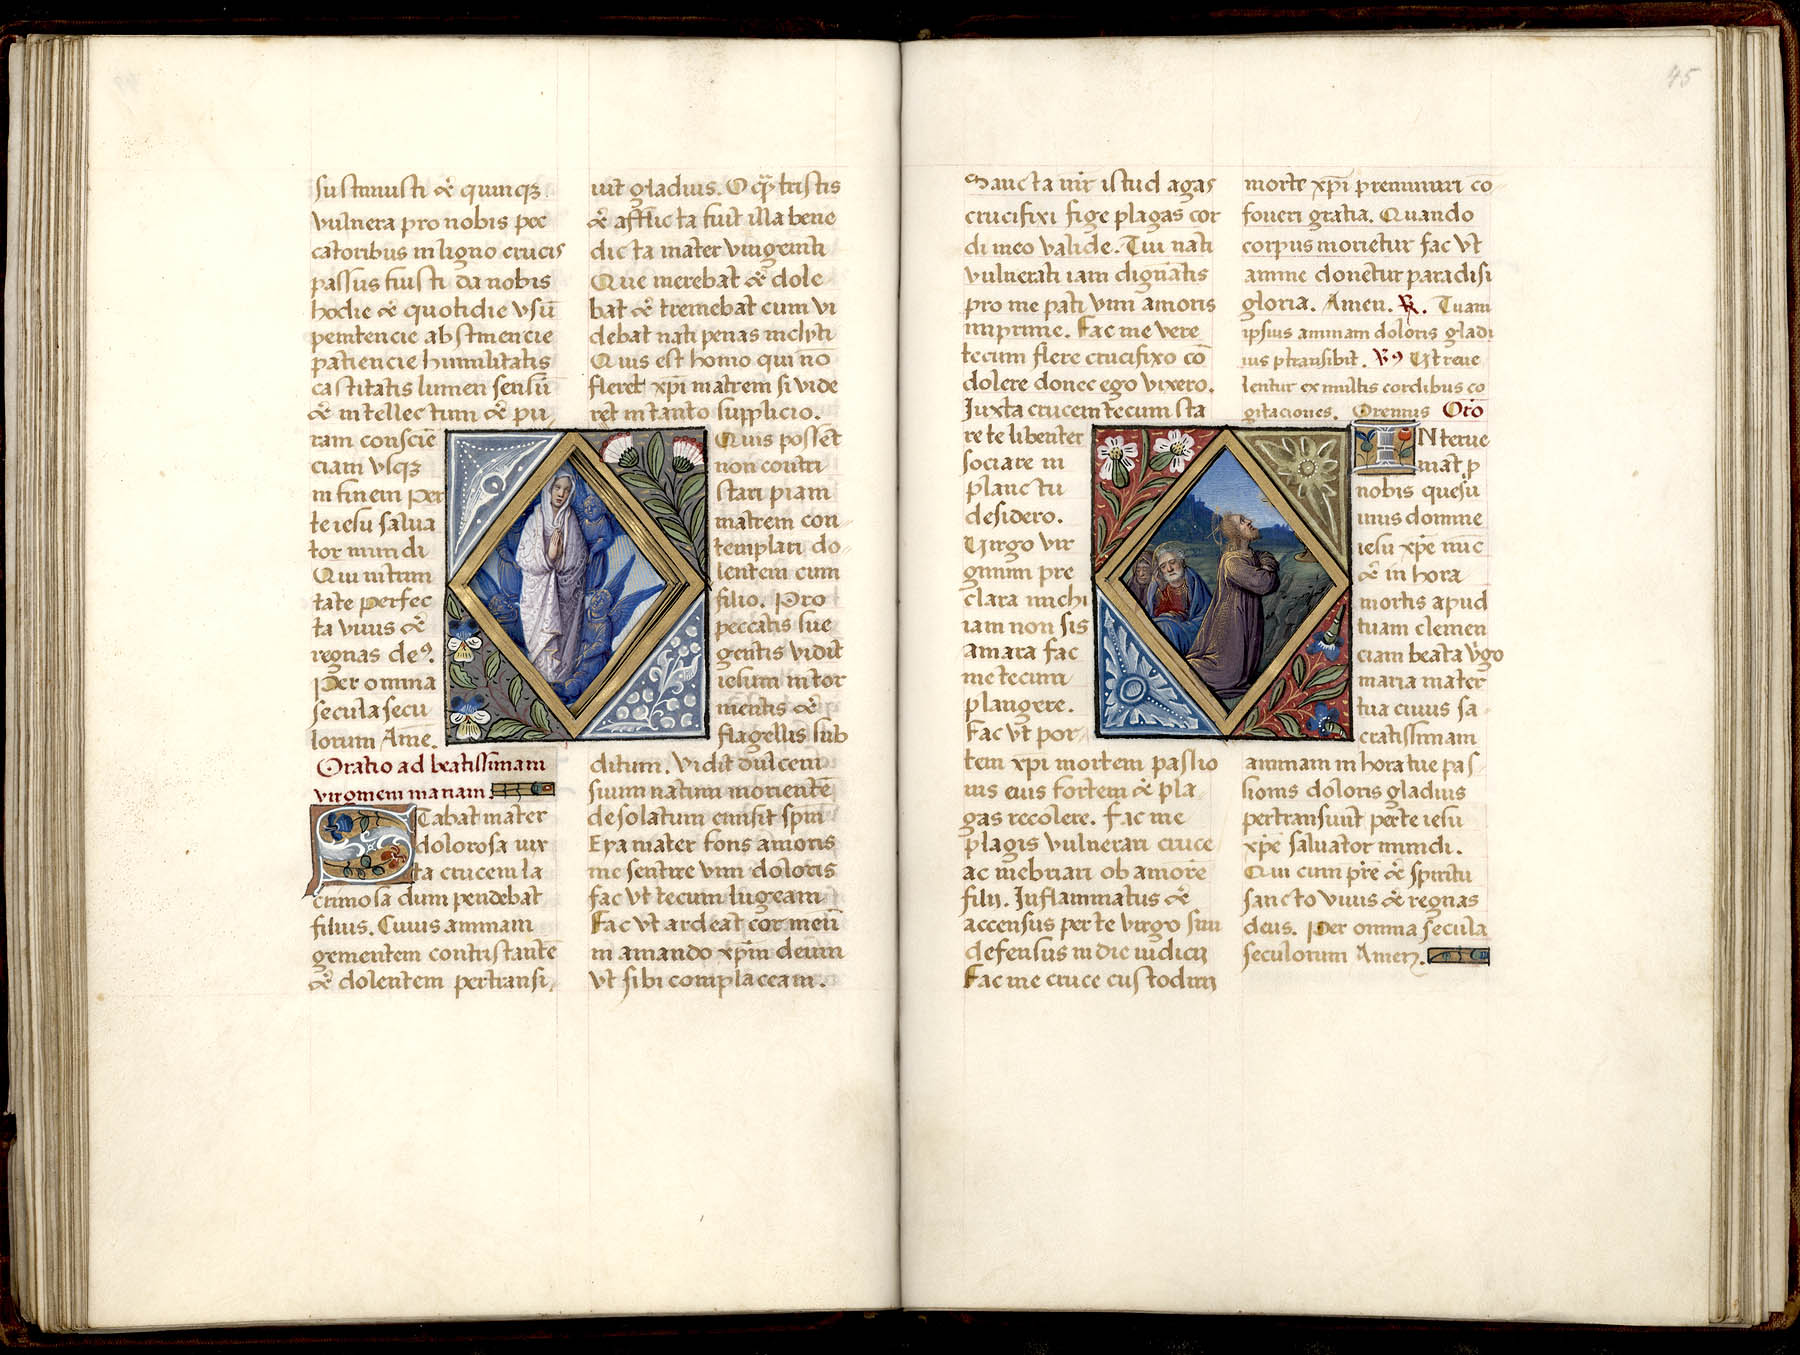 sustinuisti & quinqꝫ
vulnera pro nobis pec
catoribus in ligno crucis
passus fuisti da nobis
hodie & quotidie usū
penitencie abstinencie
paciencie humilitatis
castitatis lumen sensū
& intellectum & pu,
ram consciē
ciam usqꝫ
in finem Per
te iesu salua
tor mundi
Qui in trini
tate perfec
ta viuis &
regnas deꝰ.
Per omnia
secula secu
lorum Amē.
Oratio ad beatissimam
virginem mariam.
Stabat mater
dolorosa iux
ta crucem la
crimosa dum pendebat
filius. Cuius animam
gementem contristantē
& dolentem pertransi,
uit gladius. O qͣ tristis
& afflicta fuit illa bene
dicta mater unigeniti
Que merebat & dole
bat & tremebat cum vi
debat nati penas inclyti
Quis est homo qui nō
fleret xp̄i matrem si vide
ret in tanto supplicio.
Quis posset
non contri
stari piam
matrem con
templari do,
lentem cum
filio. Pro
peccatis sue
gentis vidit
iesum in tor
mentis &
flagellis sub
ditum. Vidit dulcem
suum natum morientē
desolatum emisit spm̄
Eya mater fons amoris
me sentire vim doloris
fac ut tecum lugeam
Fac ut ardeat cor meū
in amando xpm̄ deum
ut sibi complaceam.
45
Sancta mr̄ istud agas
crucifixi fige plagas cor
di meo valide. Tui nati
vulnerati iam dignatis
pro me pati vim amoris
imprime. Fac me vere
tecum flere crucifixo cō
dolere donec ego vixero.
Juxta crucem tecum sta
re te libenter
sociare in
planctu
desidero.
Virgo vir
ginum pre
clara michi
iam non sis
amara fac
me tecum
plangere.
Fac ut por,
tem xpi mortem passio
nis eius fortem & pla
gas recolere. Fac me
plagis vulnerari cruce
ac inebriari ob amorē
filij. Inflammatus &
accensus per te virgo sim
defensus in die iudicij
Fac me cruce custodiri
morte xp̄i premuniri co
foueri gratia. Quando
corpus morietur fac ut
anime donetur paradisi
gloria. Amen. ℟. Tuam
ipsius animam doloris gladi
ius ptransibit. ℣ꝰ Ut reue
lentur ex multis cordibus co
gitaciones. Oremus Oro
INterue
niat p
nobis quesu
mus domine
iesu xp̄e nūc
& in hora
mortis apud
tuam clemen
ciam beata vgo
maria mater
tua cuius sa
cratissimam
animam in hora tue pas,
sionis doloris gladius
pertransiuit per te iesu
xp̄e saluator mundi.
Qui cum pr̄e & spiritu
sancto viuis & regnas
deus. Per omnia secula
seculorum Amen.